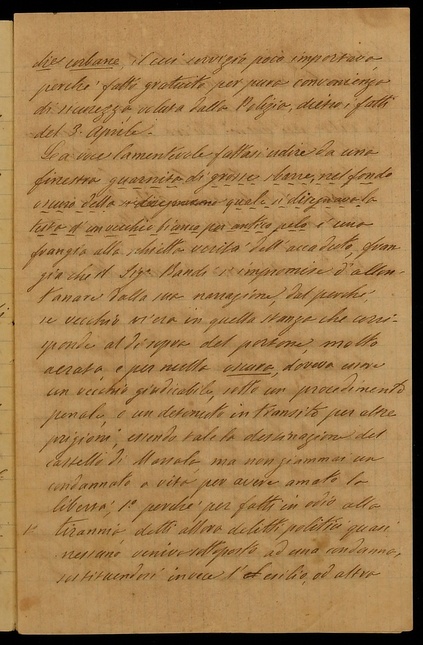 die urbane, il cui servizio poco importava
perchè fatto gratuito per pura convenienza
di sicurezza voluta dalla Polizia, dietro i fatti
del 3. Aprile.
La voce lamentevole fattasi udire da una
finestra guarnita di grosse sbarre, nel fondo
oscuro della quale si disegnava la
testa d'un vecchio bianco per antico pelo è una
frangia alla schietta verità dell'accaduto, fran
gia che il Sigr. Bandi si impromise d'allon
tanare dalla sua narrazione, dal perchè
se vecchio vi era in quella stanza che corri-
sponde al di sopra del portone molto
aerata e per nulla oscura, dovea essere
un vecchio giudicabile, sotto un procedimento
penale, o un detenuto in transito per altre
prigioni, essendo tale la destinazione del
castello di Marsala, ma non giammai un
condannato a vita per avere amato la
libertà; 1º perchè per fatti in odio alla
1º tirannia, detti allora delitti politici quasi
nessuno veniva sottoposto ad una condanna,
sostituendosi invece l'esilio, od altro